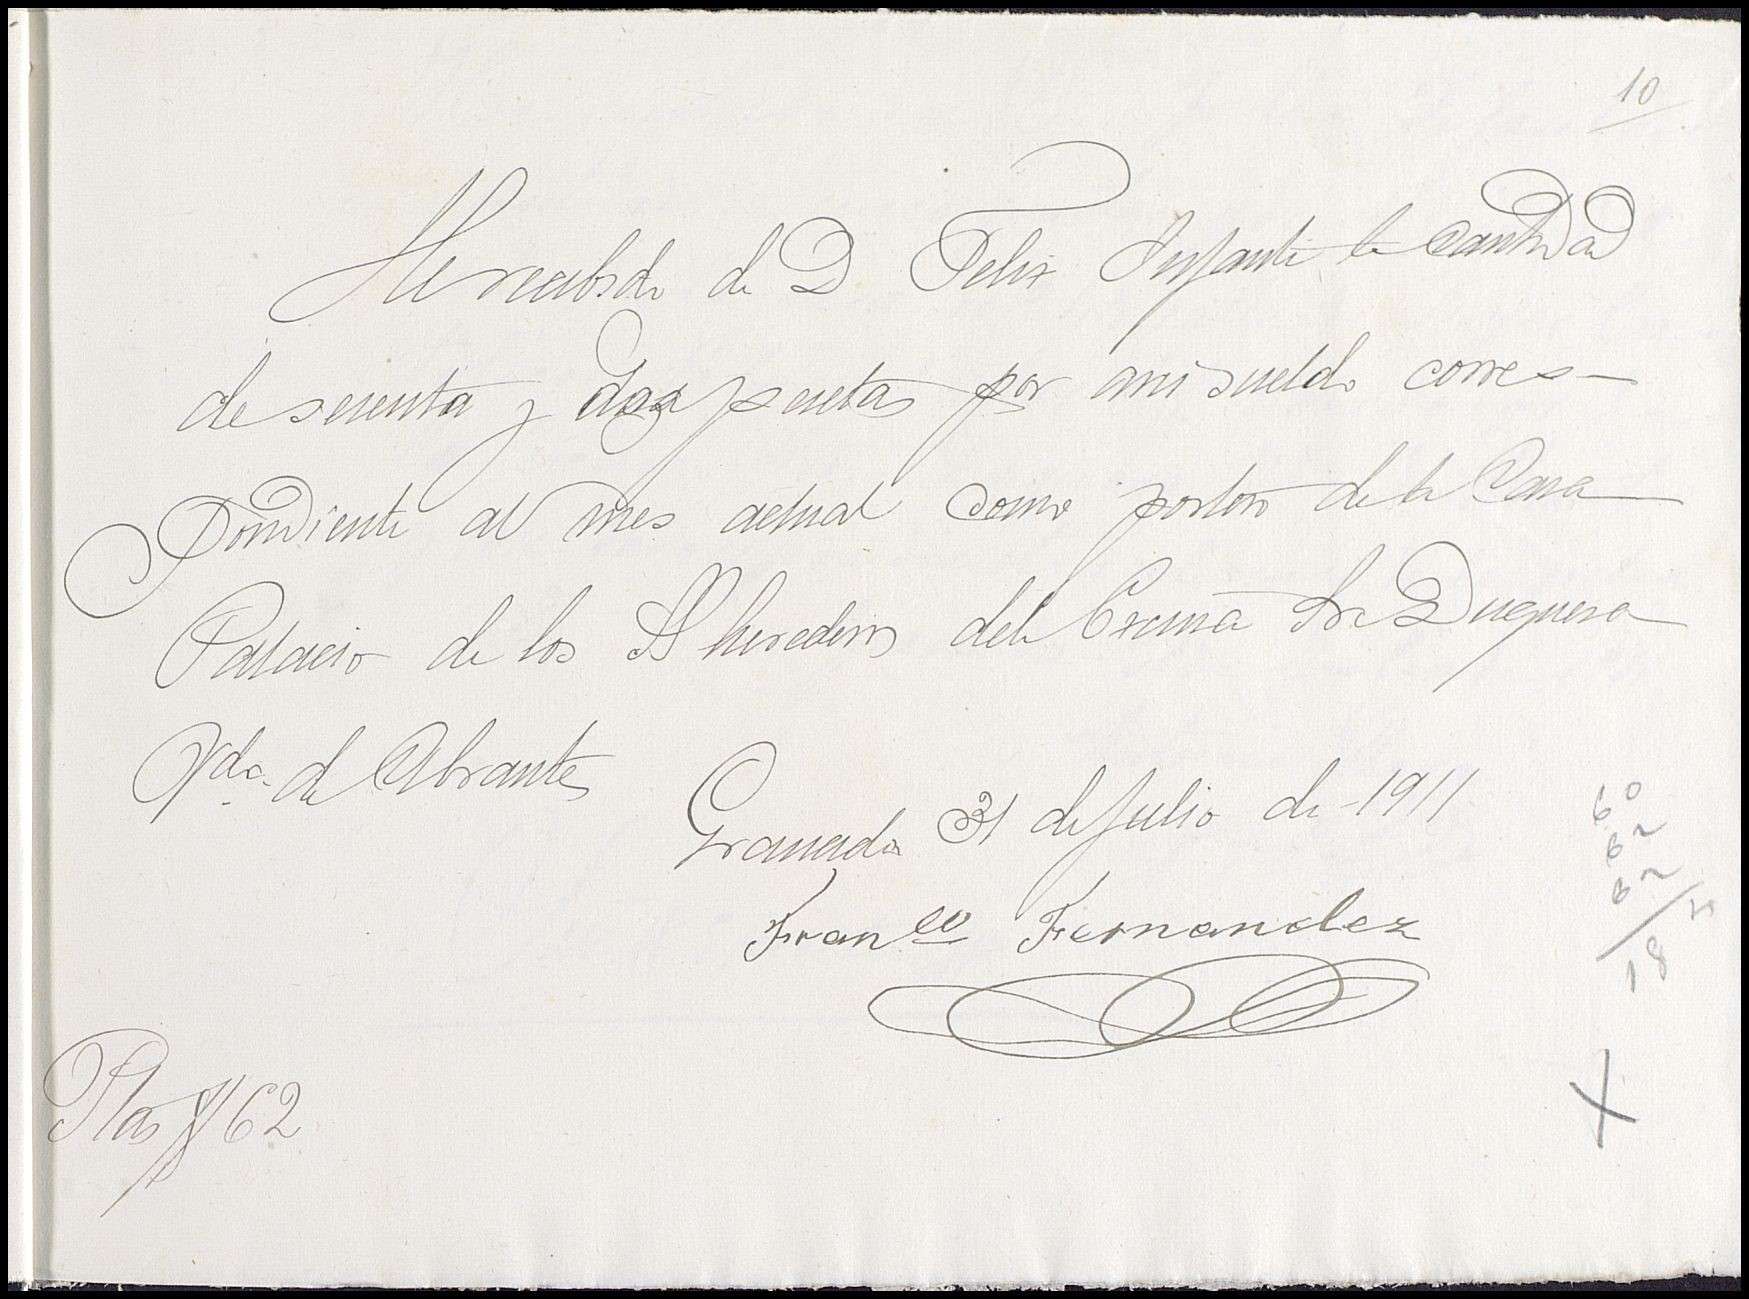 10
He recibido de D Felix Infante la Cantidad
de sesenta y dos pesetas por mi sueldo corres-
pondiente al mes actual como portero de la Casa
Palacio de los herederos de la Excma Sra Duquesa
Vda. de Abrantes
Granada 31 de Julio de 1911
Franco Fernandez
Ptas 62
60
62
62
18